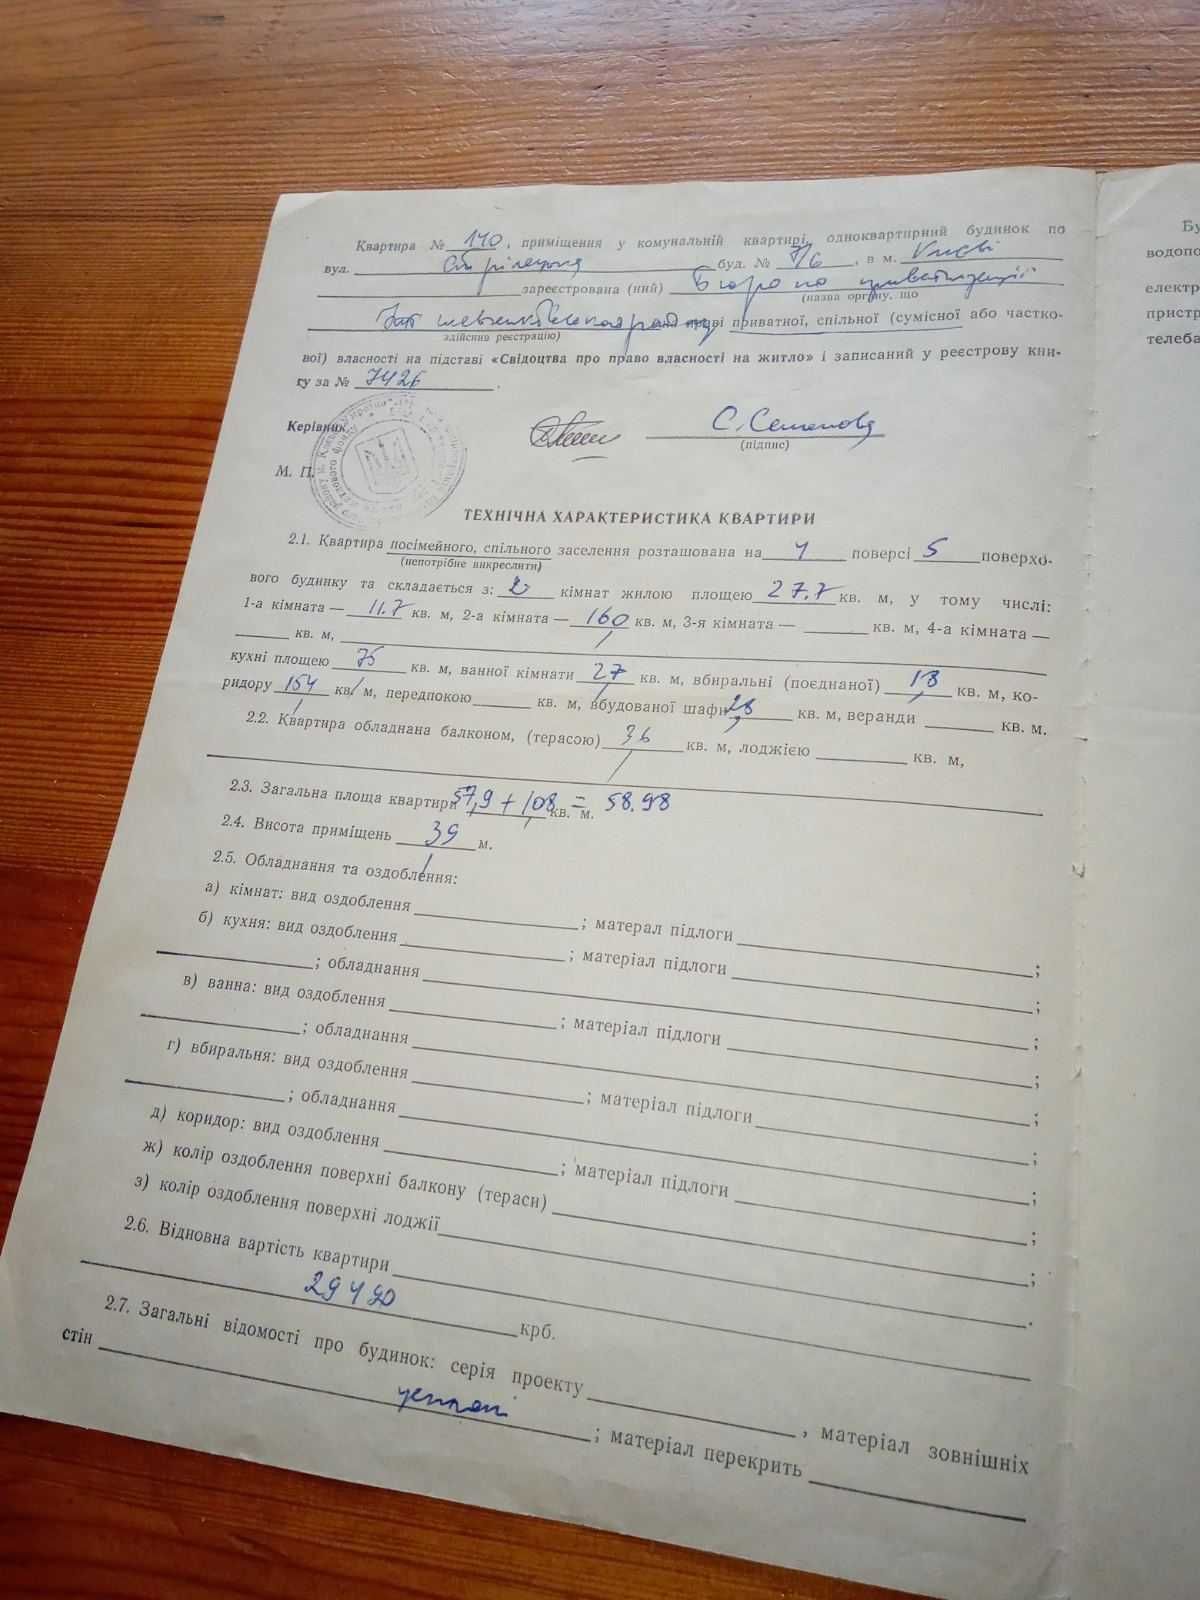 Квартира № 140, приміщення у комунальній квартирі, одноквартирний будинок по
вул. Стрілецька буд. № 7/6, в м. Києві
зареєстрована (ний) Бюро по приватизації
(назва органу, що
приватної, спільної (сумісної або частко-
здійснив реєстрацію)
вої) власності на підставі «Свідоцтва про право власності на житло» і записаний у реєстрову кни-
гу за № 7426.
Керівник С. Семенова
(підпис)
М. П.
ТЕХНІЧНА ХАРАКТЕРИСТИКА КВАРТИРИ
2.1. Квартира посімейного, спільного заселення розташована на 4 поверсі 5 поверхо-
(непотрібне викреслити)
вого будинку та складається з: 2 кімнат жилою площею 27.7 кв. м, у тому числі:
1-а кімната — 11.7 кв. м, 2-а кімната — 16,0 кв. м, 3-я кімната — кв. м, 4-а кімната —
кв. м,
кухні площею 7,5 кв. м, ванної кімнати 2,7 кв. м, вбиральні (поєднаної) 1,8 кв. м, ко-
ридору 15,4 кв. м, передпокою кв. м, вбудованої шафи 2,8 кв. м, веранди кв. м.
2.2. Квартира обладнана балконом, (терасою) 3,6 кв. м, лоджією кв. м,
2.3. Загальна площа квартири 57,9 + 1,08 = 58.98 кв. м.
2.4. Висота приміщень 3,9 м.
2.5. Обладнання та оздоблення:
а) кімнат: вид оздоблення ; матерал підлоги ;
б) кухня: вид оздоблення ; матеріал підлоги ;
; обладнання ;
в) ванна: вид оздоблення ; матеріал підлоги ;
; обладнання ;
г) вбиральня: вид оздоблення ; матеріал підлоги ;
; обладнання ;
д) коридор: вид оздоблення ; матеріал підлоги ;
ж) колір оздоблення поверхні балкону (тераси) ;
з) колір оздоблення поверхні лоджії .
2.6. Відновна вартість квартири
29490 крб.
2.7. Загальні відомості про будинок: серія проекту , матеріал зовнішніх
стін ; матеріал перекрить
Бу
водопо
електр
пристр
телеба